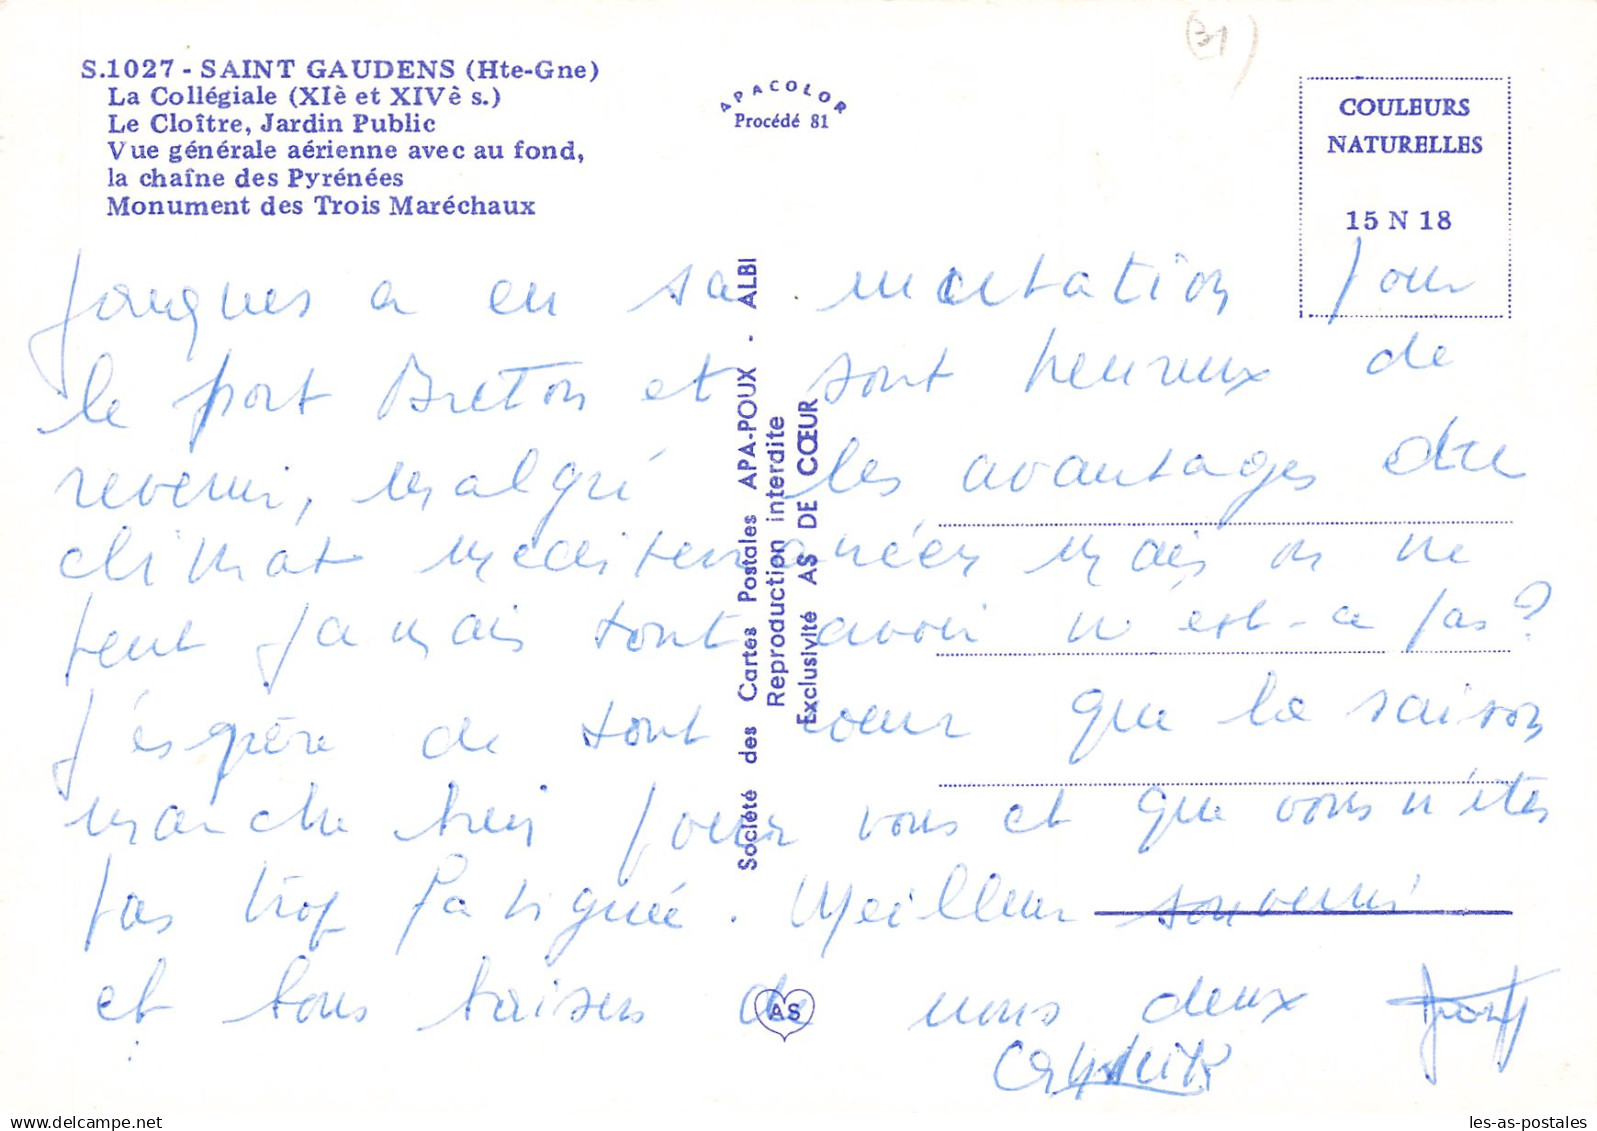 (31)
S.1027 - SAINT GAUDENS (Hte-Gne)
La Collégiale (XIè et XIVè s.)
Le Cloître, Jardin Public
Vue générale aérienne avec au fond,
la chaîne des Pyrénées
Monument des Trois Maréchaux
APACOLOR
Procédé 81
COULEURS
NATURELLES
15 N 18
Société des Cartes Postales APA-POUX - ALBI
Reproduction interdite
Exclusivité AS DE CŒUR
Jacques a eu sa mutation pour
le port Breton et sont heureux de
revenir, malgré les avantages du
climat mediterranéen mais on ne
peut jamais tout avoir n'est-ce pas ?
J'espère de tout coeur que la saison
marche bien pour vous et que vous n'êtes
pas trop fatiguée. Meilleur souvenir
et bons baisers de nous deux
AS
les-as-postales